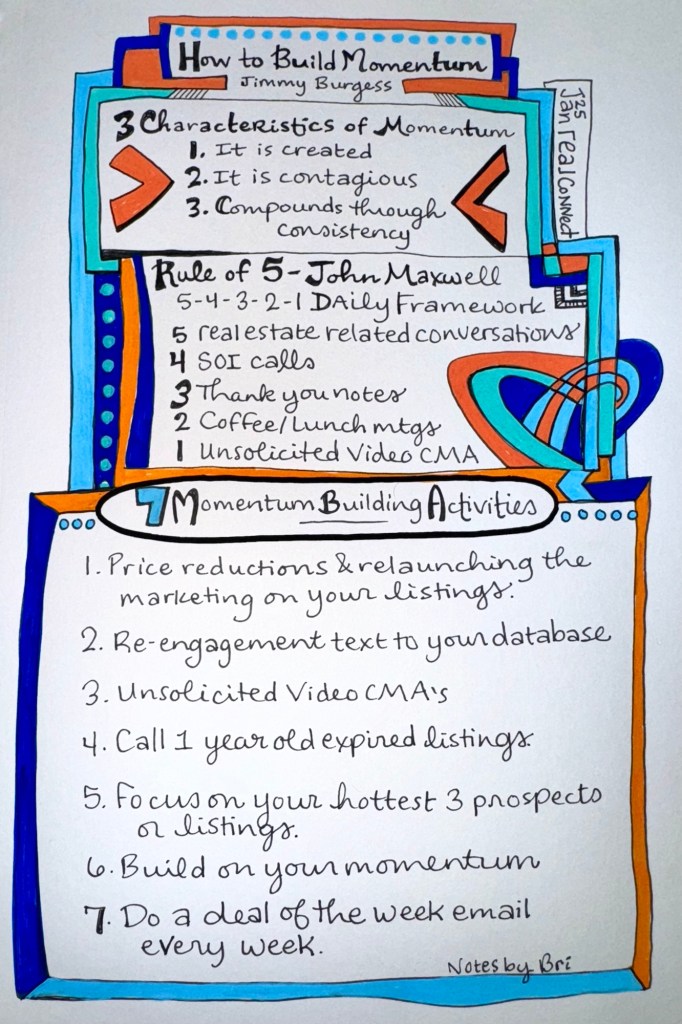 How to Build Momentum
Jimmy Burgess
Jan 25
realConnect
3 Characteristics of Momentum
1. It is created
2. It is contagious
3. Compounds through
consistency
Rule of 5 - John Maxwell
5-4-3-2-1 DAily Framework
5 real estate related conversations
4 SOI calls
3 Thank you notes
2 Coffee/Lunch mtgs
1 Unsolicited Video CMA
7 Momentum Building Activities
1. Price reductions & relaunching the
marketing on your listings.
2. Re-engagement text to your database
3. Unsolicited Video CMA's
4. Call 1 year old expired listings.
5. Focus on your hottest 3 prospects
or listings.
6. Build on your momentum
7. Do a deal of the week email
every week.
Notes by Bri